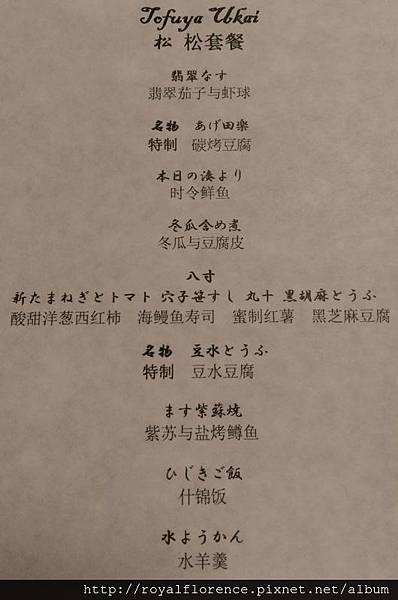 Tofuya Ukai
松 松套餐
翡翠なす
翡翠茄子与虾球
名物 あげ田楽
特制 碳烤豆腐
本日の湊より
时令鲜鱼
冬瓜含め煮
冬瓜与豆腐皮
八寸
新たまねぎとトマト 穴子笹すし 丸十 黒胡麻とうふ
酸甜洋葱西红柿 海鳗鱼寿司 蜜制红薯 黑芝麻豆腐
名物 豆水とうふ
特制 豆水豆腐
ます紫蘇焼
紫苏与盐烤鳟鱼
ひじきご飯
什锦饭
水ようかん
水羊羹
http://royalflorence.pixnet.net/album